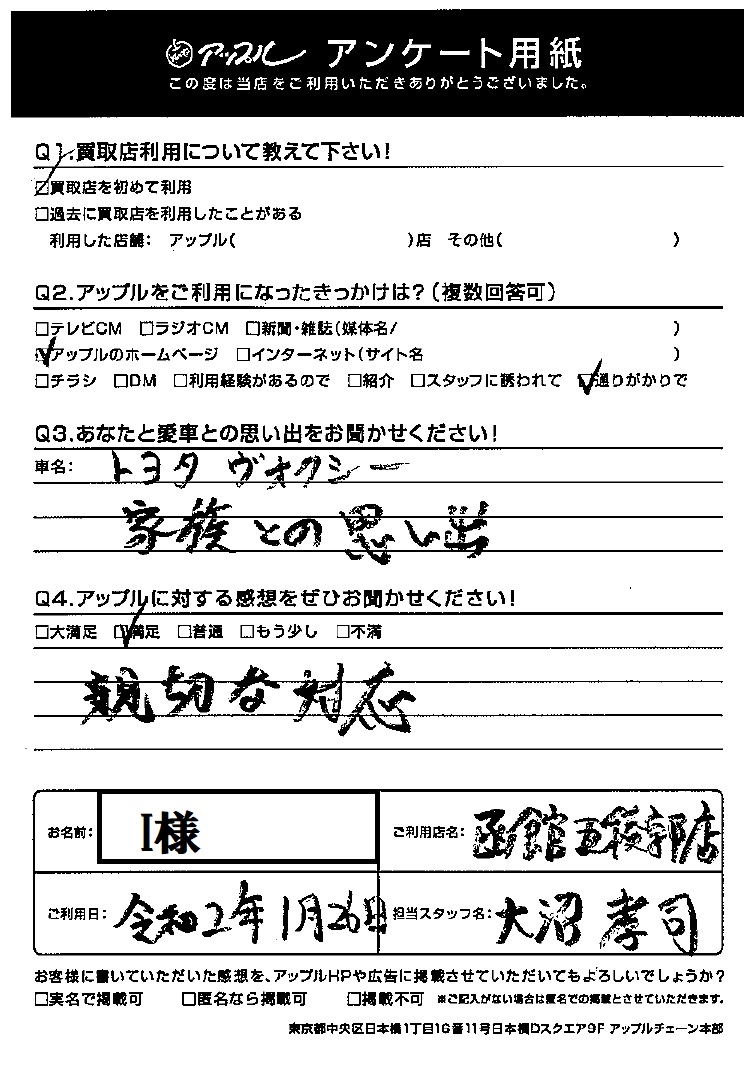 アップル アンケート用紙
この度は当店をご利用いただきありがとうございました。
Q1.買取店利用について教えて下さい!
☑買取店を初めて利用
□過去に買取店を利用したことがある
利用した店舗: アップル( )店 その他( )
Q2.アップルをご利用になったきっかけは?(複数回答可)
□テレビCM □ラジオCM □新聞・雑誌(媒体名/ )
☑アップルのホームページ □インターネット(サイト名 )
□チラシ □DM □利用経験があるので □紹介 □スタッフに誘われて ☑通りがかりで
Q3.あなたと愛車との思い出をお聞かせください!
車名: トヨタ ヴォクシー
家族との思い出
Q4.アップルに対する感想をぜひお聞かせください!
□大満足 ☑満足 □普通 □もう少し □不満
親切な対応
お名前: I様 ご利用店名: 函館五稜郭店
ご利用日: 令和2年1月26日 担当スタッフ名: 大沼 孝司
お客様に書いていただいた感想を、アップルHPや広告に掲載させていただいてもよろしいでしょうか?
□実名で掲載可 □匿名なら掲載可 □掲載不可 ※ご記入がない場合は匿名での掲載とさせていただきます。
東京都中央区日本橋1丁目16番11号日本橋Dスクエア9F アップルチェーン本部